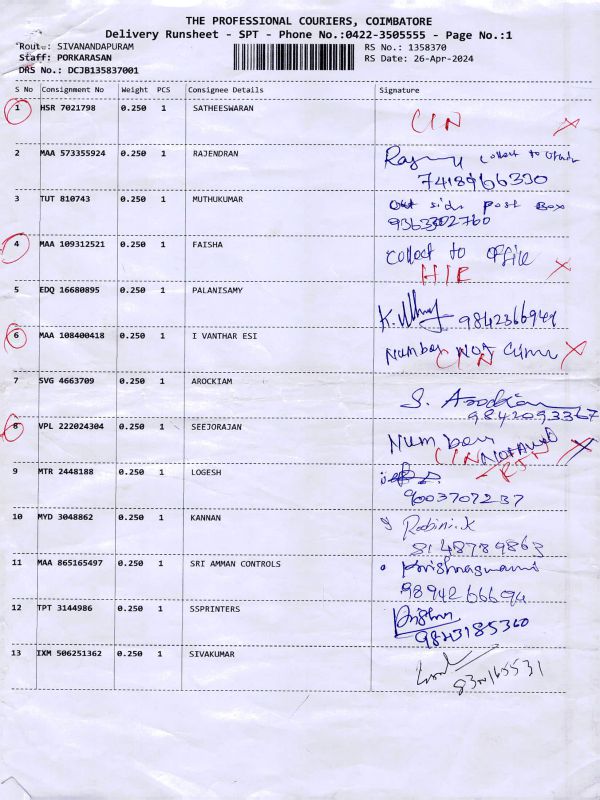 THE PROFESSIONAL COURIERS, COIMBATORE
Delivery Runsheet - SPT - Phone No.:0422-3505555 - Page No.:1
Route: SIVANANDAPURAM
RS No.: 1358370
Staff: PORKARASAN
RS Date: 26-Apr-2024
DRS No.: DCJB135837001
S No Consignment No Weight PCS Consignee Details Signature
1 HSR 7021798 0.250 1 SATHEESWARAN
CIN X
2 MAA 573355924 0.250 1 RAJENDRAN
collect to
7418966330
3 TUT 810743 0.250 1 MUTHUKUMAR
side post Box
9363302760
4 MAA 109312521 0.250 1 FAISHA
collect to office
HIE X
5 EDQ 16680895 0.250 1 PALANISAMY
9842366941
6 MAA 108400418 0.250 1 I VANTHAR ESI
Number Not
CIN X
7 SVG 4663709 0.250 1 AROCKIAM
S. Arockiam
9842093367
8 VPL 222024304 0.250 1 SEEJORAJAN
Number
CIN X
9 MTR 2448188 0.250 1 LOGESH
9003707237
10 MYD 3048862 0.250 1 KANNAN
Robini.K
8148789863
11 MAA 865165497 0.250 1 SRI AMMAN CONTROLS
Krishnaswami
9894266694
12 TPT 3144986 0.250 1 SSPRINTERS
9843185360
13 IXM 506251362 0.250 1 SIVAKUMAR